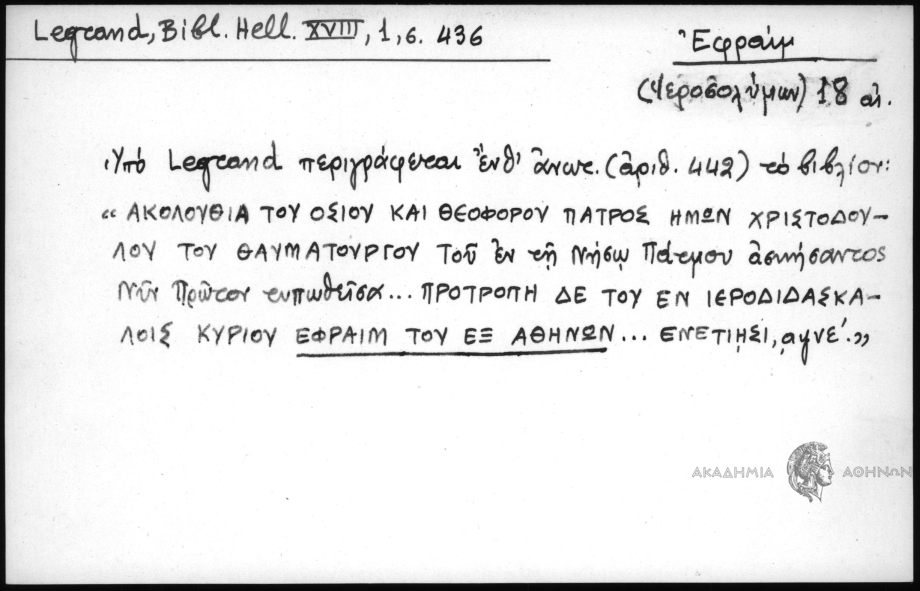 Legrand, Bibl. Hell. XVIII, 1, σ. 436
Ἐφραίμ
(Ἱεροσολύμων) 18 αἰ.
Ὑπό Legrand περιγράφεται ἔνθ' ἄνωτ. (ἀριθ. 442) τό βιβλίον:
"ΑΚΟΛΟΥΘΙΑ ΤΟΥ ΟΣΙΟΥ ΚΑΙ ΘΕΟΦΟΡΟΥ ΠΑΤΡΟΣ ΗΜΩΝ ΧΡΙΣΤΟΔΟΥ-
ΛΟΥ ΤΟΥ ΘΑΥΜΑΤΟΥΡΓΟΥ Τοῦ ἐν τῇ Νήσῳ Πάτμου ἀσκήσαντος
Νῦν Πρῶτον τυπωθεῖσα... ΠΡΟΤΡΟΠΗ ΔΕ ΤΟΥ ΕΝ ΙΕΡΟΔΙΔΑΣΚΑ-
ΛΟΙΣ ΚΥΡΙΟΥ ΕΦΡΑΙΜ ΤΟΥ ΕΞ ΑΘΗΝΩΝ... ΕΝΕΤΙΗΣΙ, αψνε'."
ΑΚΑΔΗΜΙΑ ΑΘΗΝΩΝ